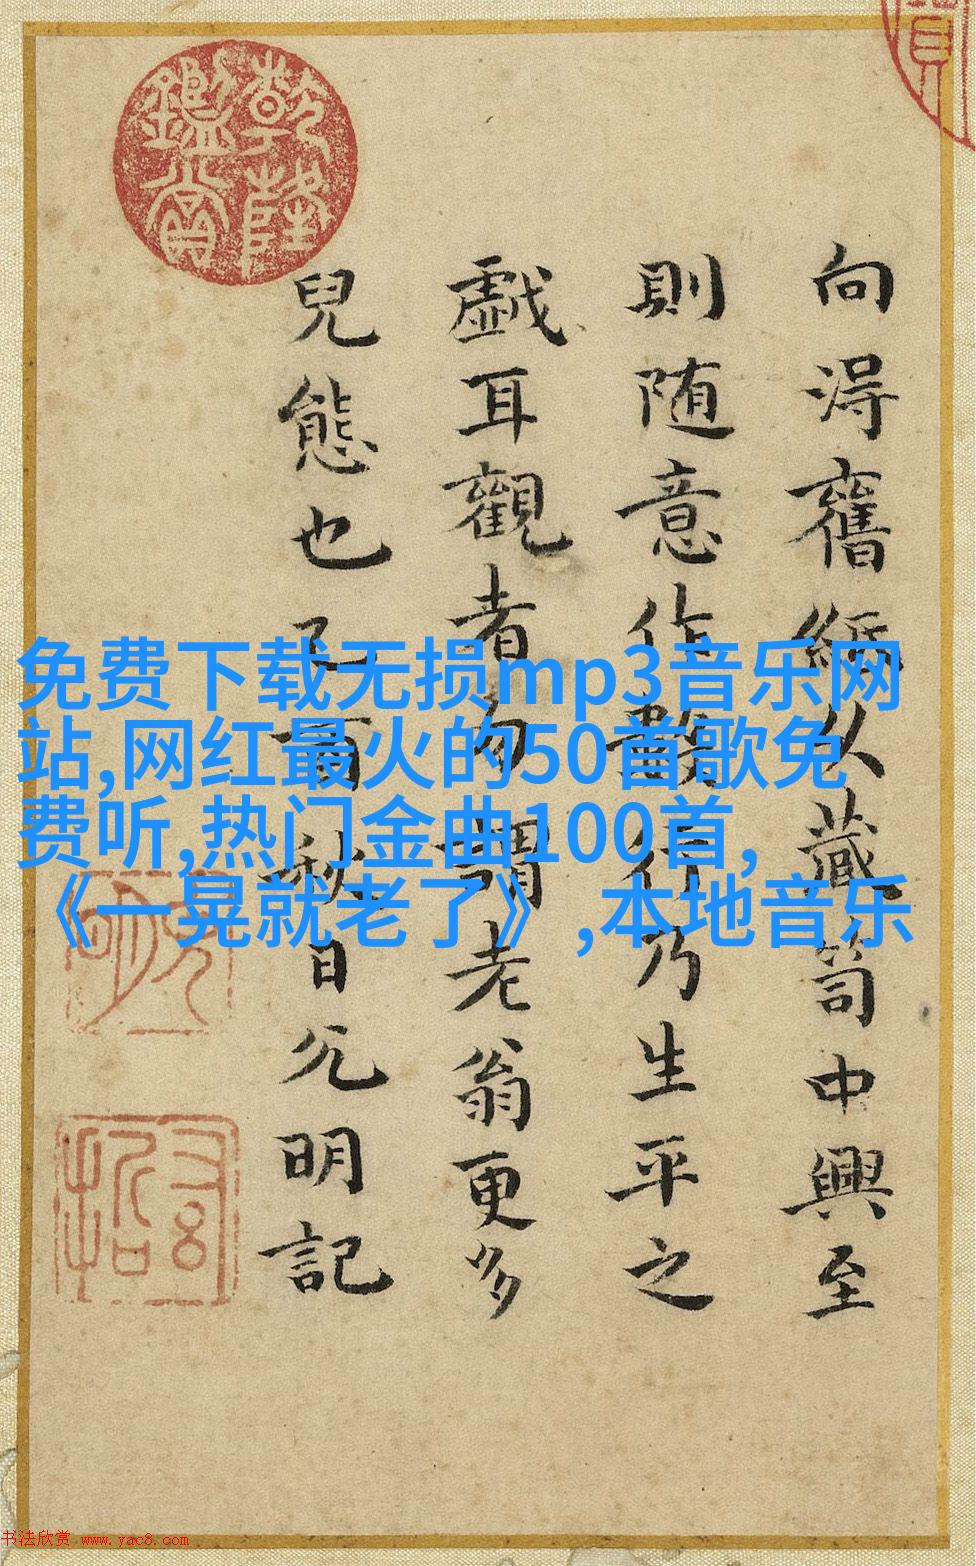 向淂舊紙以藏笥中興至
則随意作數行乃生平之
戲耳觀者勿謂老翁更多
兒態也乙酉秋日允明記
乾隆
鑑賞
免费下载无损mp3音乐网
站,网红最火的50首歌免
费听,热门金曲100首,
《一晃就老了》,本地音乐
书法欣赏 www.yac8.com